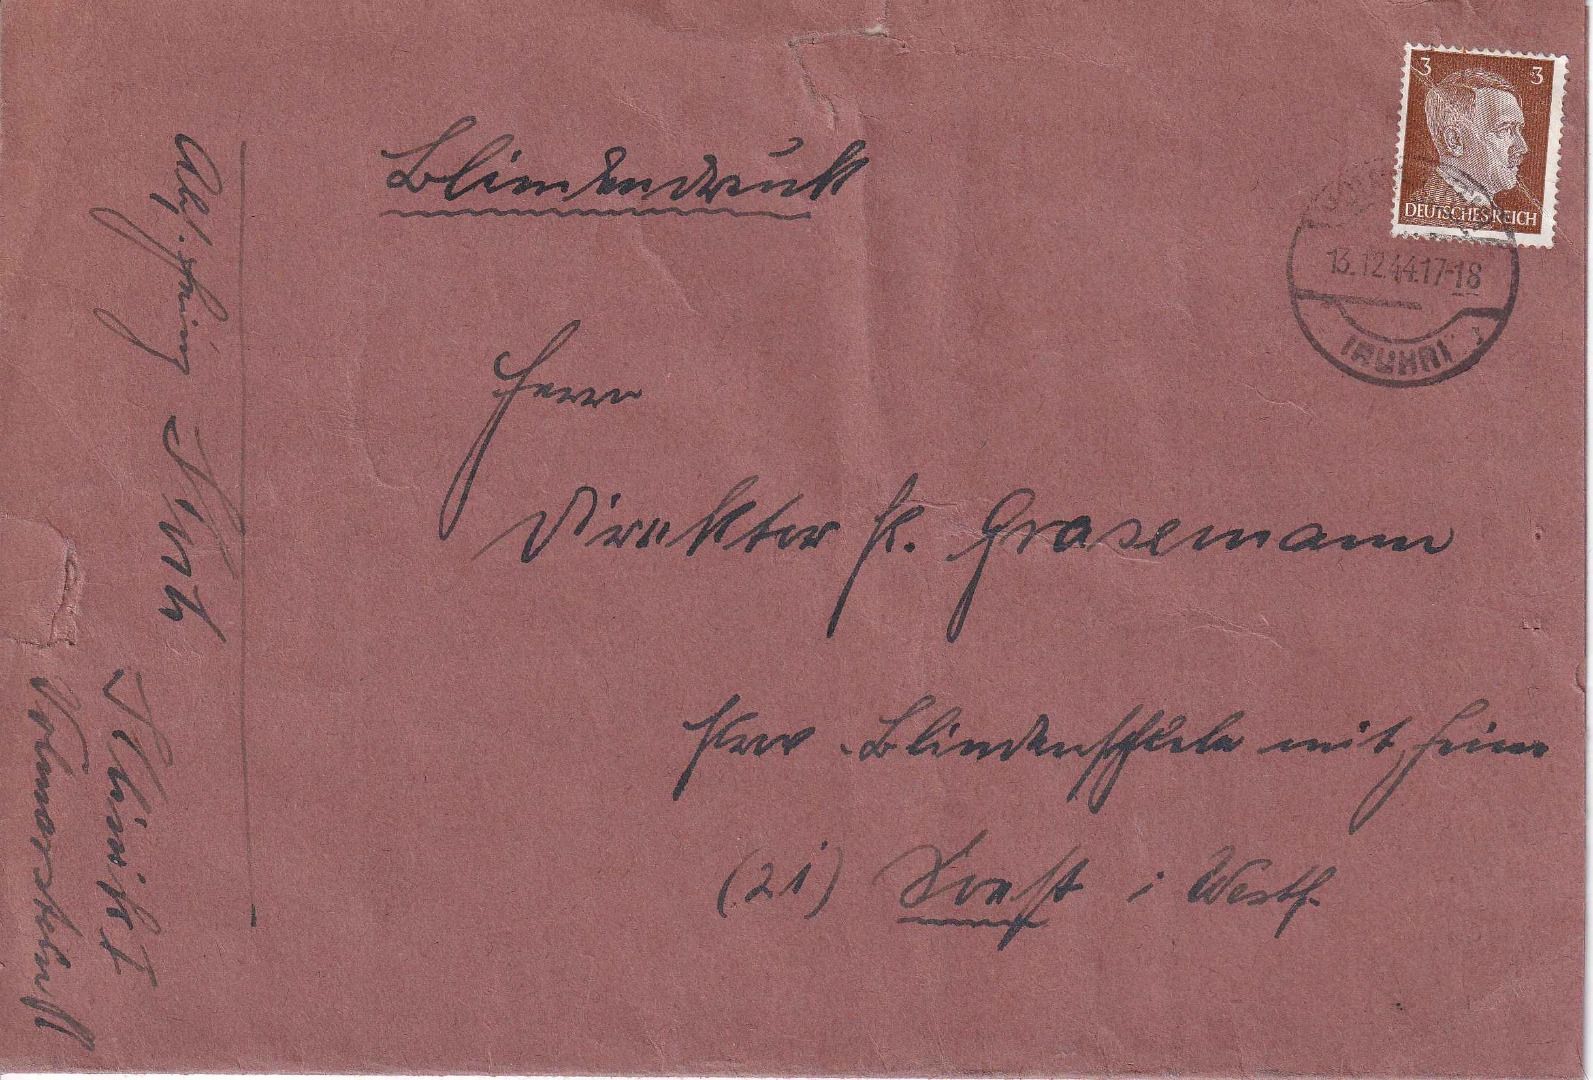 Blindendruck
3 3
DEUTSCHES REICH
13.12.44.17-18
(RUHR) 1
Herrn
Direktor P. Grasemann
Prov. Blindenschule mit Heim
(21) Soest i Westf.
Abs.
Klinik I
Volmarstein